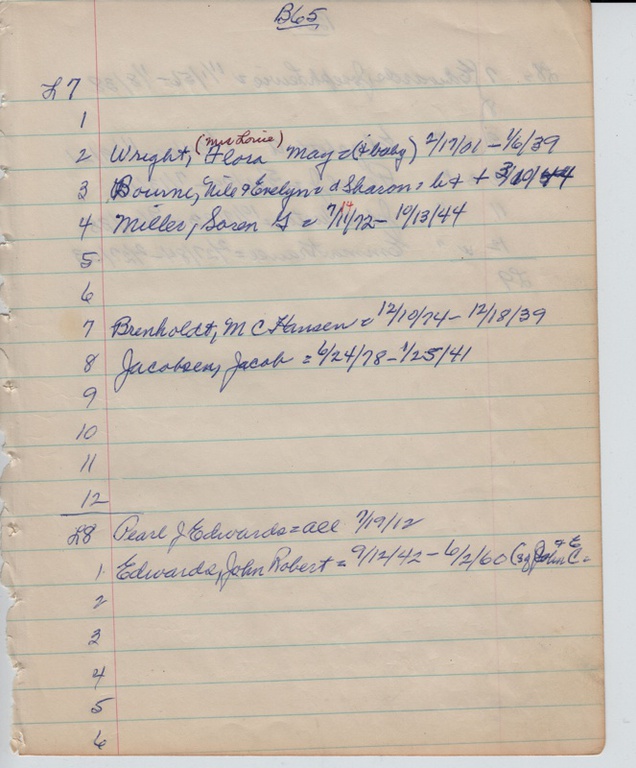 B65
L7
1
(Mrs Louie)
2 Wright, Flora May = (& baby) 2/17/01 - 1/6/39
3 Bourne, Nile & Evelyn = d Sharon = b & + 3/10/44
4 Miller, Soren G = 7/14/72 - 10/13/44
5
6
7 Brenholdt, M C Hansen = 12/10/74 - 12/18/39
8 Jacobsen, Jacob = 6/24/78 - 1/25/41
9
10
11
12
L8 Pearl J Edwards = all 7/19/12
1 Edwards, John Robert = 9/12/42 - 6/2/60 (s of John C & E =
2
3
4
5
6